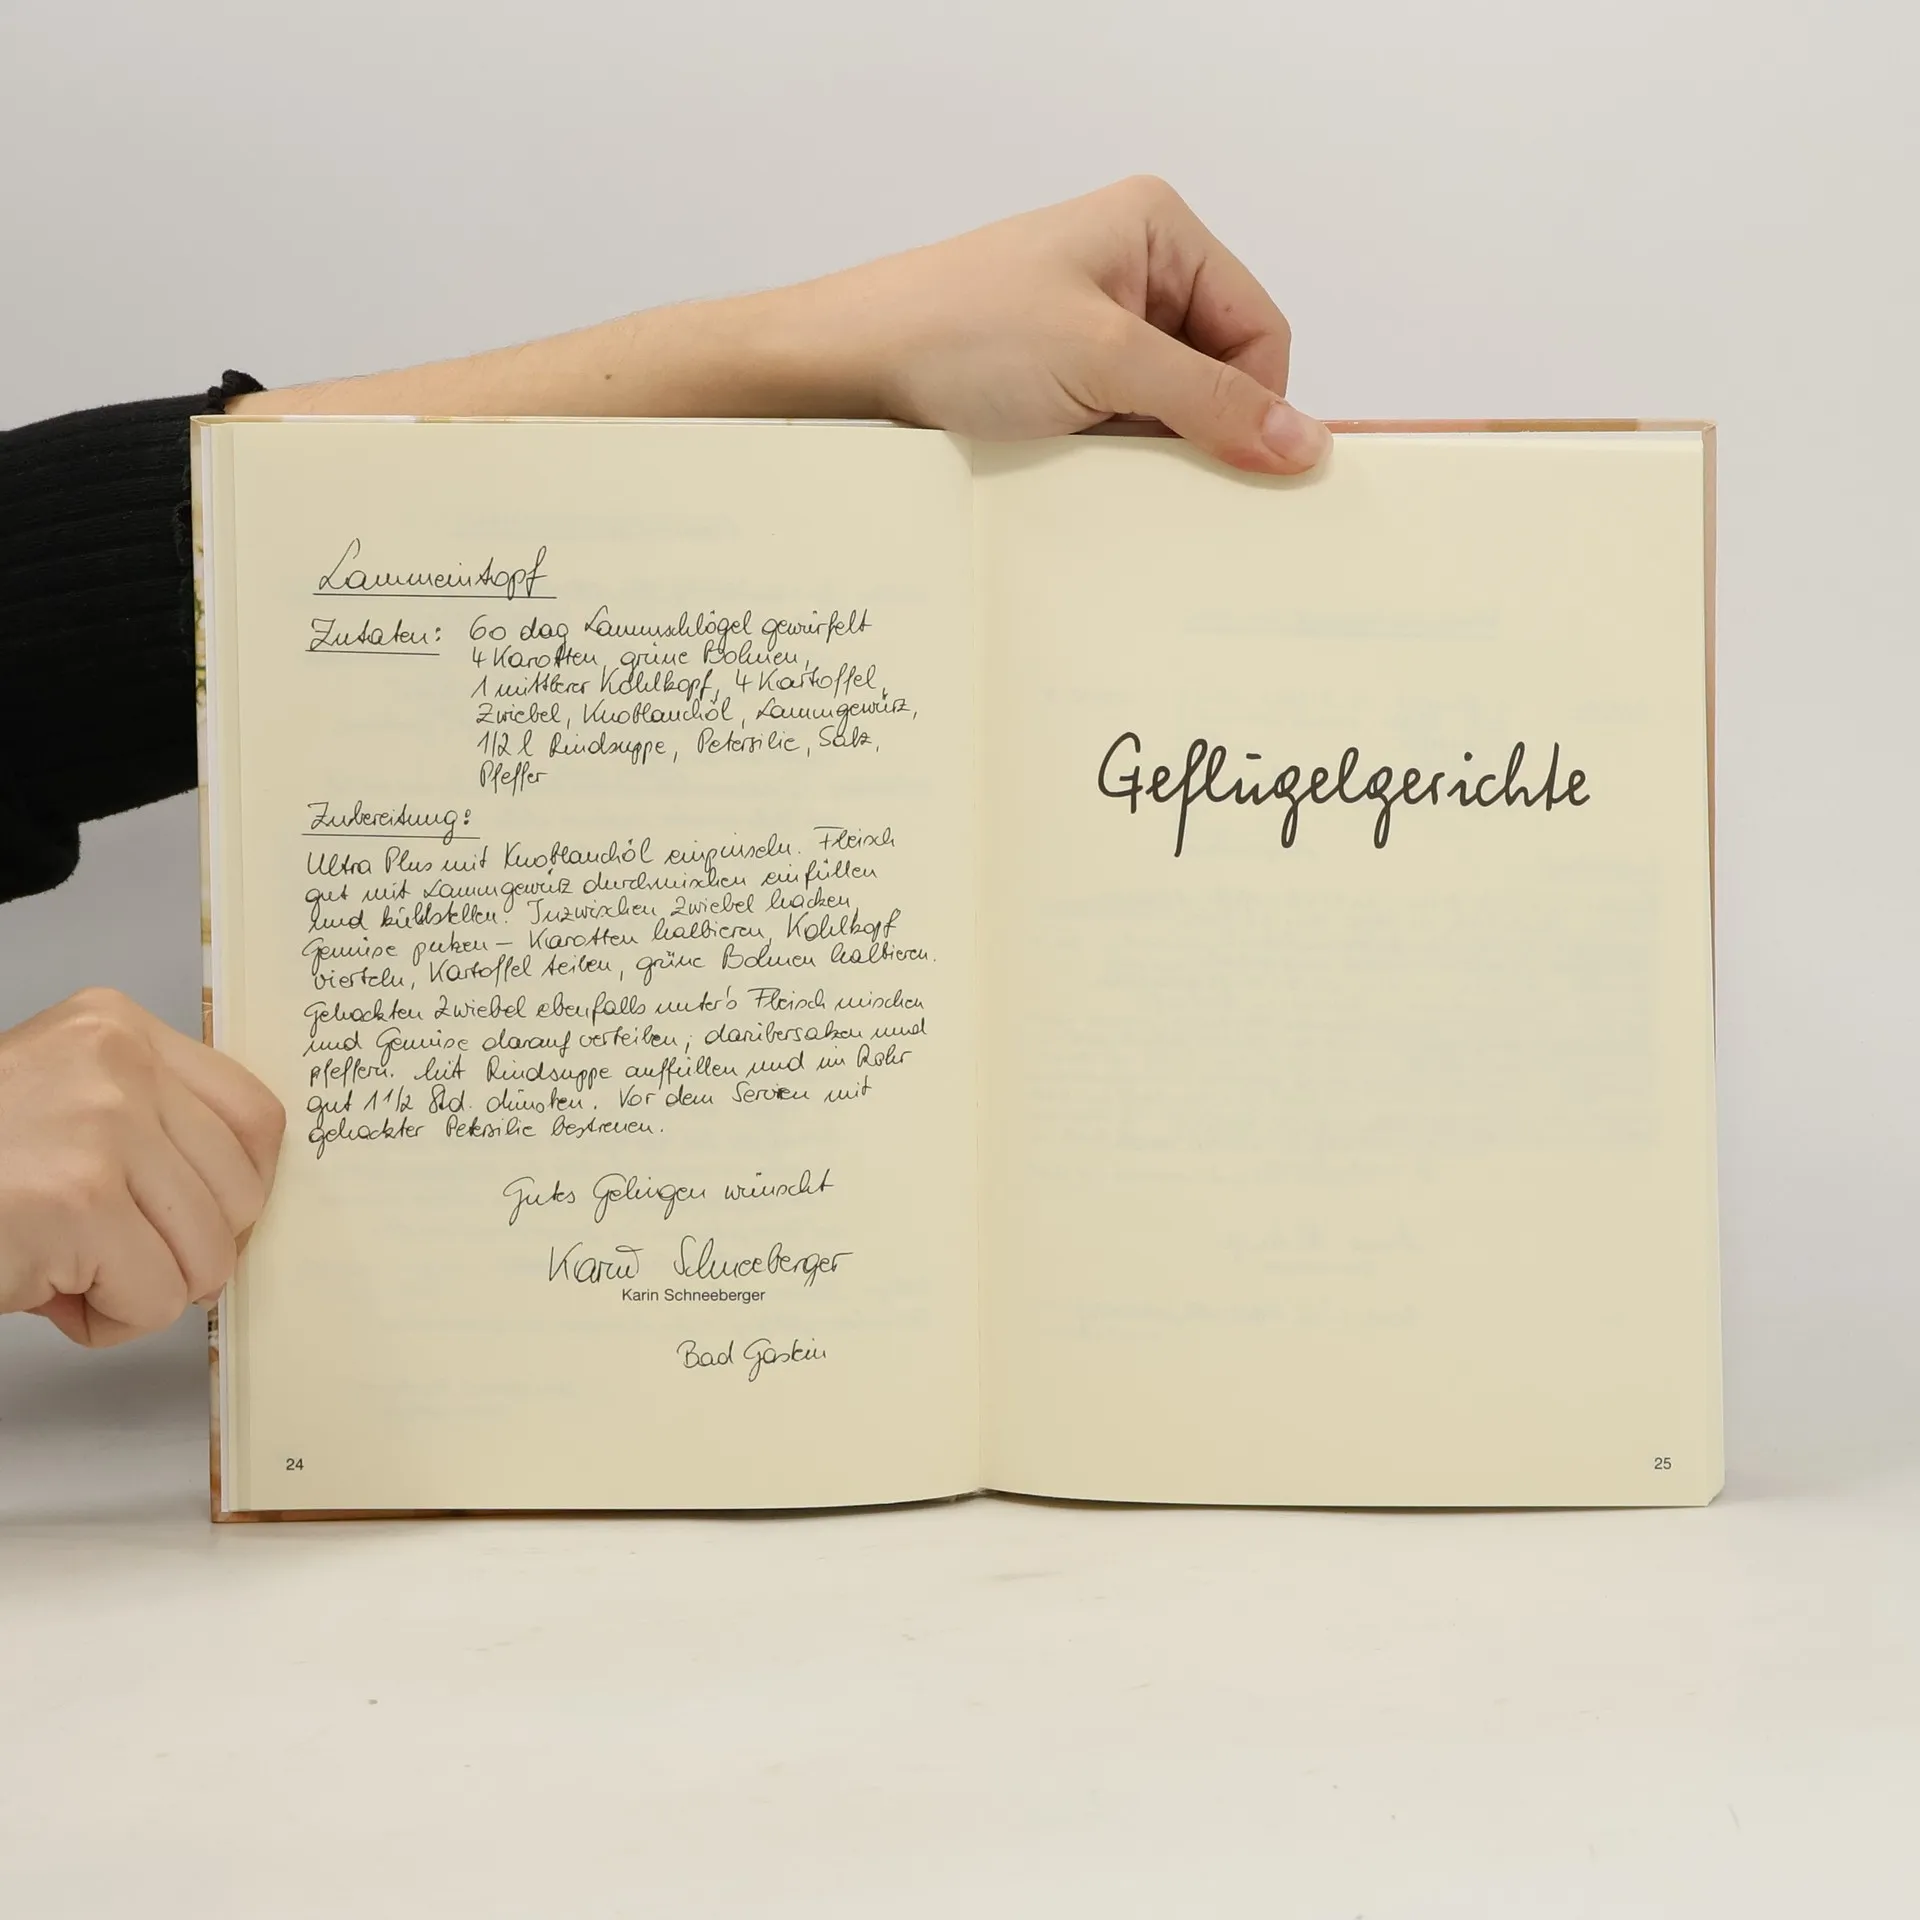 Lammeintopf
Zutaten: 60 dag Lammschlögel gewürfelt
4 Karotten, grüne Bohnen,
1 mittlerer Kohlkopf, 4 Kartoffel,
Zwiebel, Knoblauchöl, Lammgewürz,
1/2 l Rindsuppe, Petersilie, Salz,
Pfeffer
Zubereitung:
Ultra Plus mit Knoblauchöl einpinseln. Fleisch
gut mit Lammgewürz durchmischen einfüllen
und kühlstellen. Inzwischen Zwiebel hacken,
Gemüse putzen – Karotten halbieren, Kohlkopf
vierteln, Kartoffel teilen, grüne Bohnen halbieren.
Gehackten Zwiebel ebenfalls unter's Fleisch mischen
und Gemüse darauf verteilen, darübersalzen und
pfeffern. Mit Rindsuppe auffüllen und im Rohr
gut 1 1/2 Std. dünsten. Vor dem Servieren mit
gehackter Petersilie bestreuen.
Gutes Gelingen wünscht
Karin Schneeberger
Karin Schneeberger
Bad Gastein
24
Geflügelgerichte
25